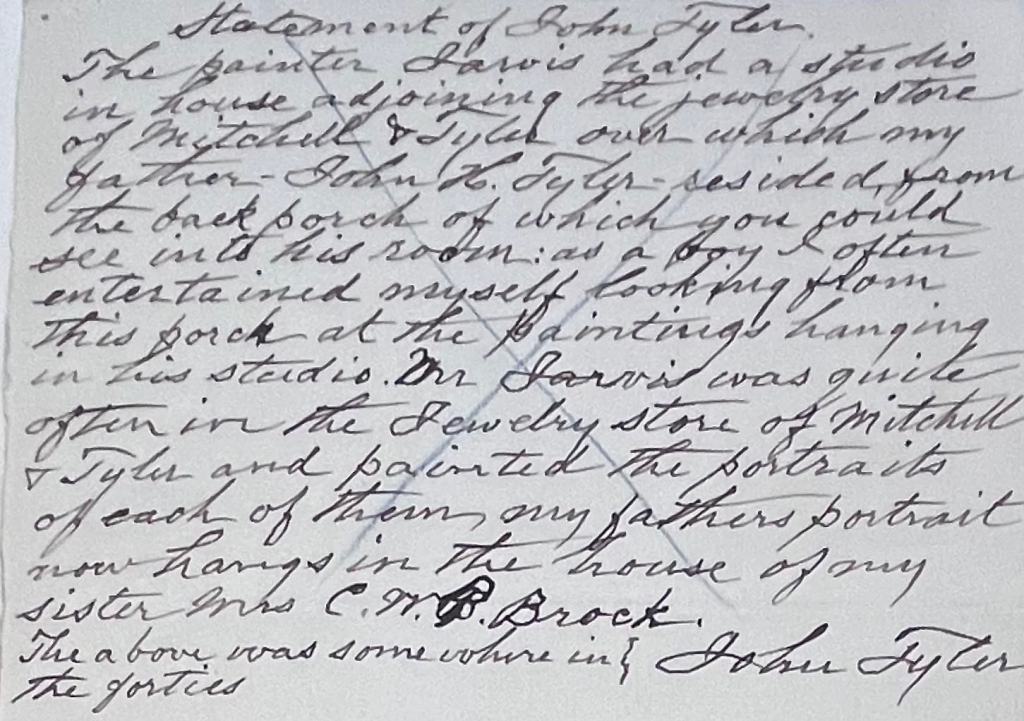 Statement of John Tyler.
The painter Jarvis had a studio
in house adjoining the jewelry store
of Mitchell & Tyler over which my
father - John H. Tyler - resided, from
the back porch of which you could
see into his room: as a boy I often
entertained myself looking from
this porch at the paintings hanging
in his studio. Mr Jarvis was quite
often in the Jewelry store of Mitchell
& Tyler and painted the portraits
of each of them, my fathers portrait
now hangs in the house of my
sister Mrs C. W. P. Brock.
The above was somewhere in } John Tyler
the forties